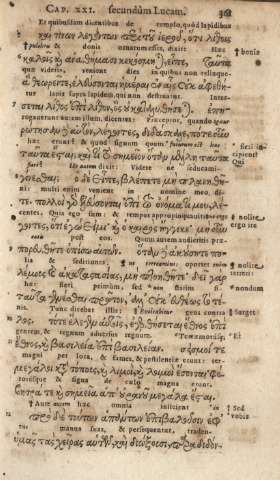 CAP. XXI. secundùm Lucam. 361
Et quibusdam dicentibus de templo, quòd lapidibus
καί τινων λεγόντων περὶ τοῦ ἱεροῦ, ὅτι λίθοις
† pulchris & donis ornatum esset, dixit: Hæc † bonis
καλοῖς καὶ ἀναθήμασι κεκόσμηται, εἶπε, ταῦτα
quæ videtis, venient dies in quibus non relinque-
ἃ θεωρεῖτε, ἐλεύσονται ἡμέραι ἐν αἷς οὐκ ἀφεθή-
tur lapis super lapidem, qui non destruatur. Inter-
σεται λίθος ἐπὶ λίθον, ὃς οὐ καταλυθήσεται. ἐπη-
rogauerunt autem illum, dicentes: Præceptor, quando
ρώτησαν δὲ αὐτὸν, λέγοντες, διδάσκαλε, πότε οὖν
hæc erunt? & quod signum quum futurum est hæc † fieri in-
ταῦτα ἔσται, καὶ τί τὸ σημεῖον ὅταν μέλλῃ ταῦτα cipient?
fieri? dixit: Videte ne seducami- Qui
γίνεσθαι; ὁ δὲ εἶπε, βλέπετε μὴ πλανηθῆ-
ni: multi enim venient in nomine meo, di-
τε. πολλοὶ γὰρ ἐλεύσονται ἐπὶ τῷ ὀνόματί μου, λέ-
centes, Quia ego sum: & tempus appropinquauit: † nolite
γοντες, ὅτι ἐγώ εἰμι· καὶ ὁ καιρὸς ἤγγικε· μὴ οὖν ergo ire
post eos. Quum autem audieritis præ-
πορευθῆτε ὀπίσω αὐτῶν. ὅταν δὲ ἀκούσητε πο-
lia & seditiones, oportet enim † nolite
λέμους καὶ ἀκαταστασίας, μὴ πτοηθῆτε· δεῖ γὰρ terreri:
hæc fieri primùm, sed non statim finis. † nondum
ταῦτα γενέσθαι πρῶτον, ἀλλ' οὐκ εὐθέως τὸ τέ-
Tunc dicebat illis: gens contra † Surget
λος. τότε ἔλεγεν αὐτοῖς, ἐγερθήσεται ἔθνος ἐπὶ
gentem, & regnum aduersus regnum. Terræmotus † Et
ἔθνος, καὶ βασιλεία ἐπὶ βασιλείαν. σεισμοί τε
magni per loca, & fames, & pestilentiæ erunt: ter-
μεγάλοι κατὰ τόπους, καὶ λιμοὶ, καὶ λοιμοὶ ἔσονται· φό-
roresque & signa de cælo magna erunt.
βητρά τε καὶ σημεῖα ἀπ' οὐρανοῦ μεγάλα ἔσται.
† Ante autem hæc omnia iniicient † Sed
πρὸ δὲ τούτων ἁπάντων ἐπιβαλοῦσιν ἐφ' vobis
manus suas, & persequentur, traden-
ὑμᾶς τὰς χεῖρας αὑτῶν, καὶ διώξουσι, παραδιδόν-